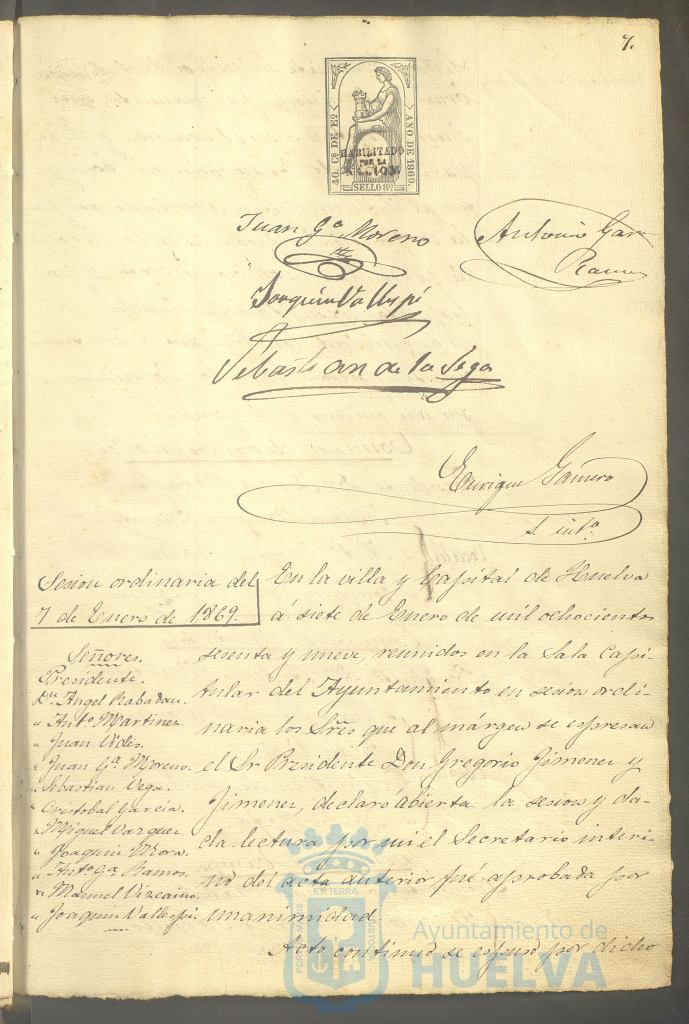 7.
40. Cs DE Eo.
AÑO DE 1869.
HABILITADO
POR LA
NACION.
SELLO 8º
Juan Ga Moreno
Antonio Gar
Ramos
Joaquin Vallespi
Sebastian de la Vega
Enrique Gamero
S. into.
Sesion ordinaria del
7 de Enero de 1869.
Señores.
Presidente.
Dn. Angel Rabadan.
" Anto. Martinez
" Juan Vides.
" Juan Ga. Moreno.
" Sebastian Vega.
" Cristobal Garcia.
" Miguel Vazquez.
" Joaquin Mora.
" Anto. Ga. Ramos.
" Manuel Vizcaino
" Joaquin Vallespi.
En la villa y Capital de Huelva
á siete de Enero de mil ochocientos
sesenta y nueve, reunidos en la Sala Capi-
tular del Ayuntamiento en sesion ordi-
naria los Sres que al márgen se espresan
el Sr Presidente Don Gregorio Jimenez y
Jimenez, declaró abierta la sesion y da-
da lectura por mi el Secretario interi-
no del acta anterior fué aprobada por
unanimidad.
Acto continuo se espuso por dicho
PORTUS MARIS ET TERRÆ CUSTODIA
Ayuntamiento de
HUELVA